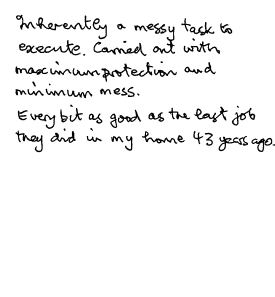 Inherently a messy task to
execute. Carried out with
maximum protection and
minimum mess.
Every bit as good as the last job
they did in my home 43 years ago.